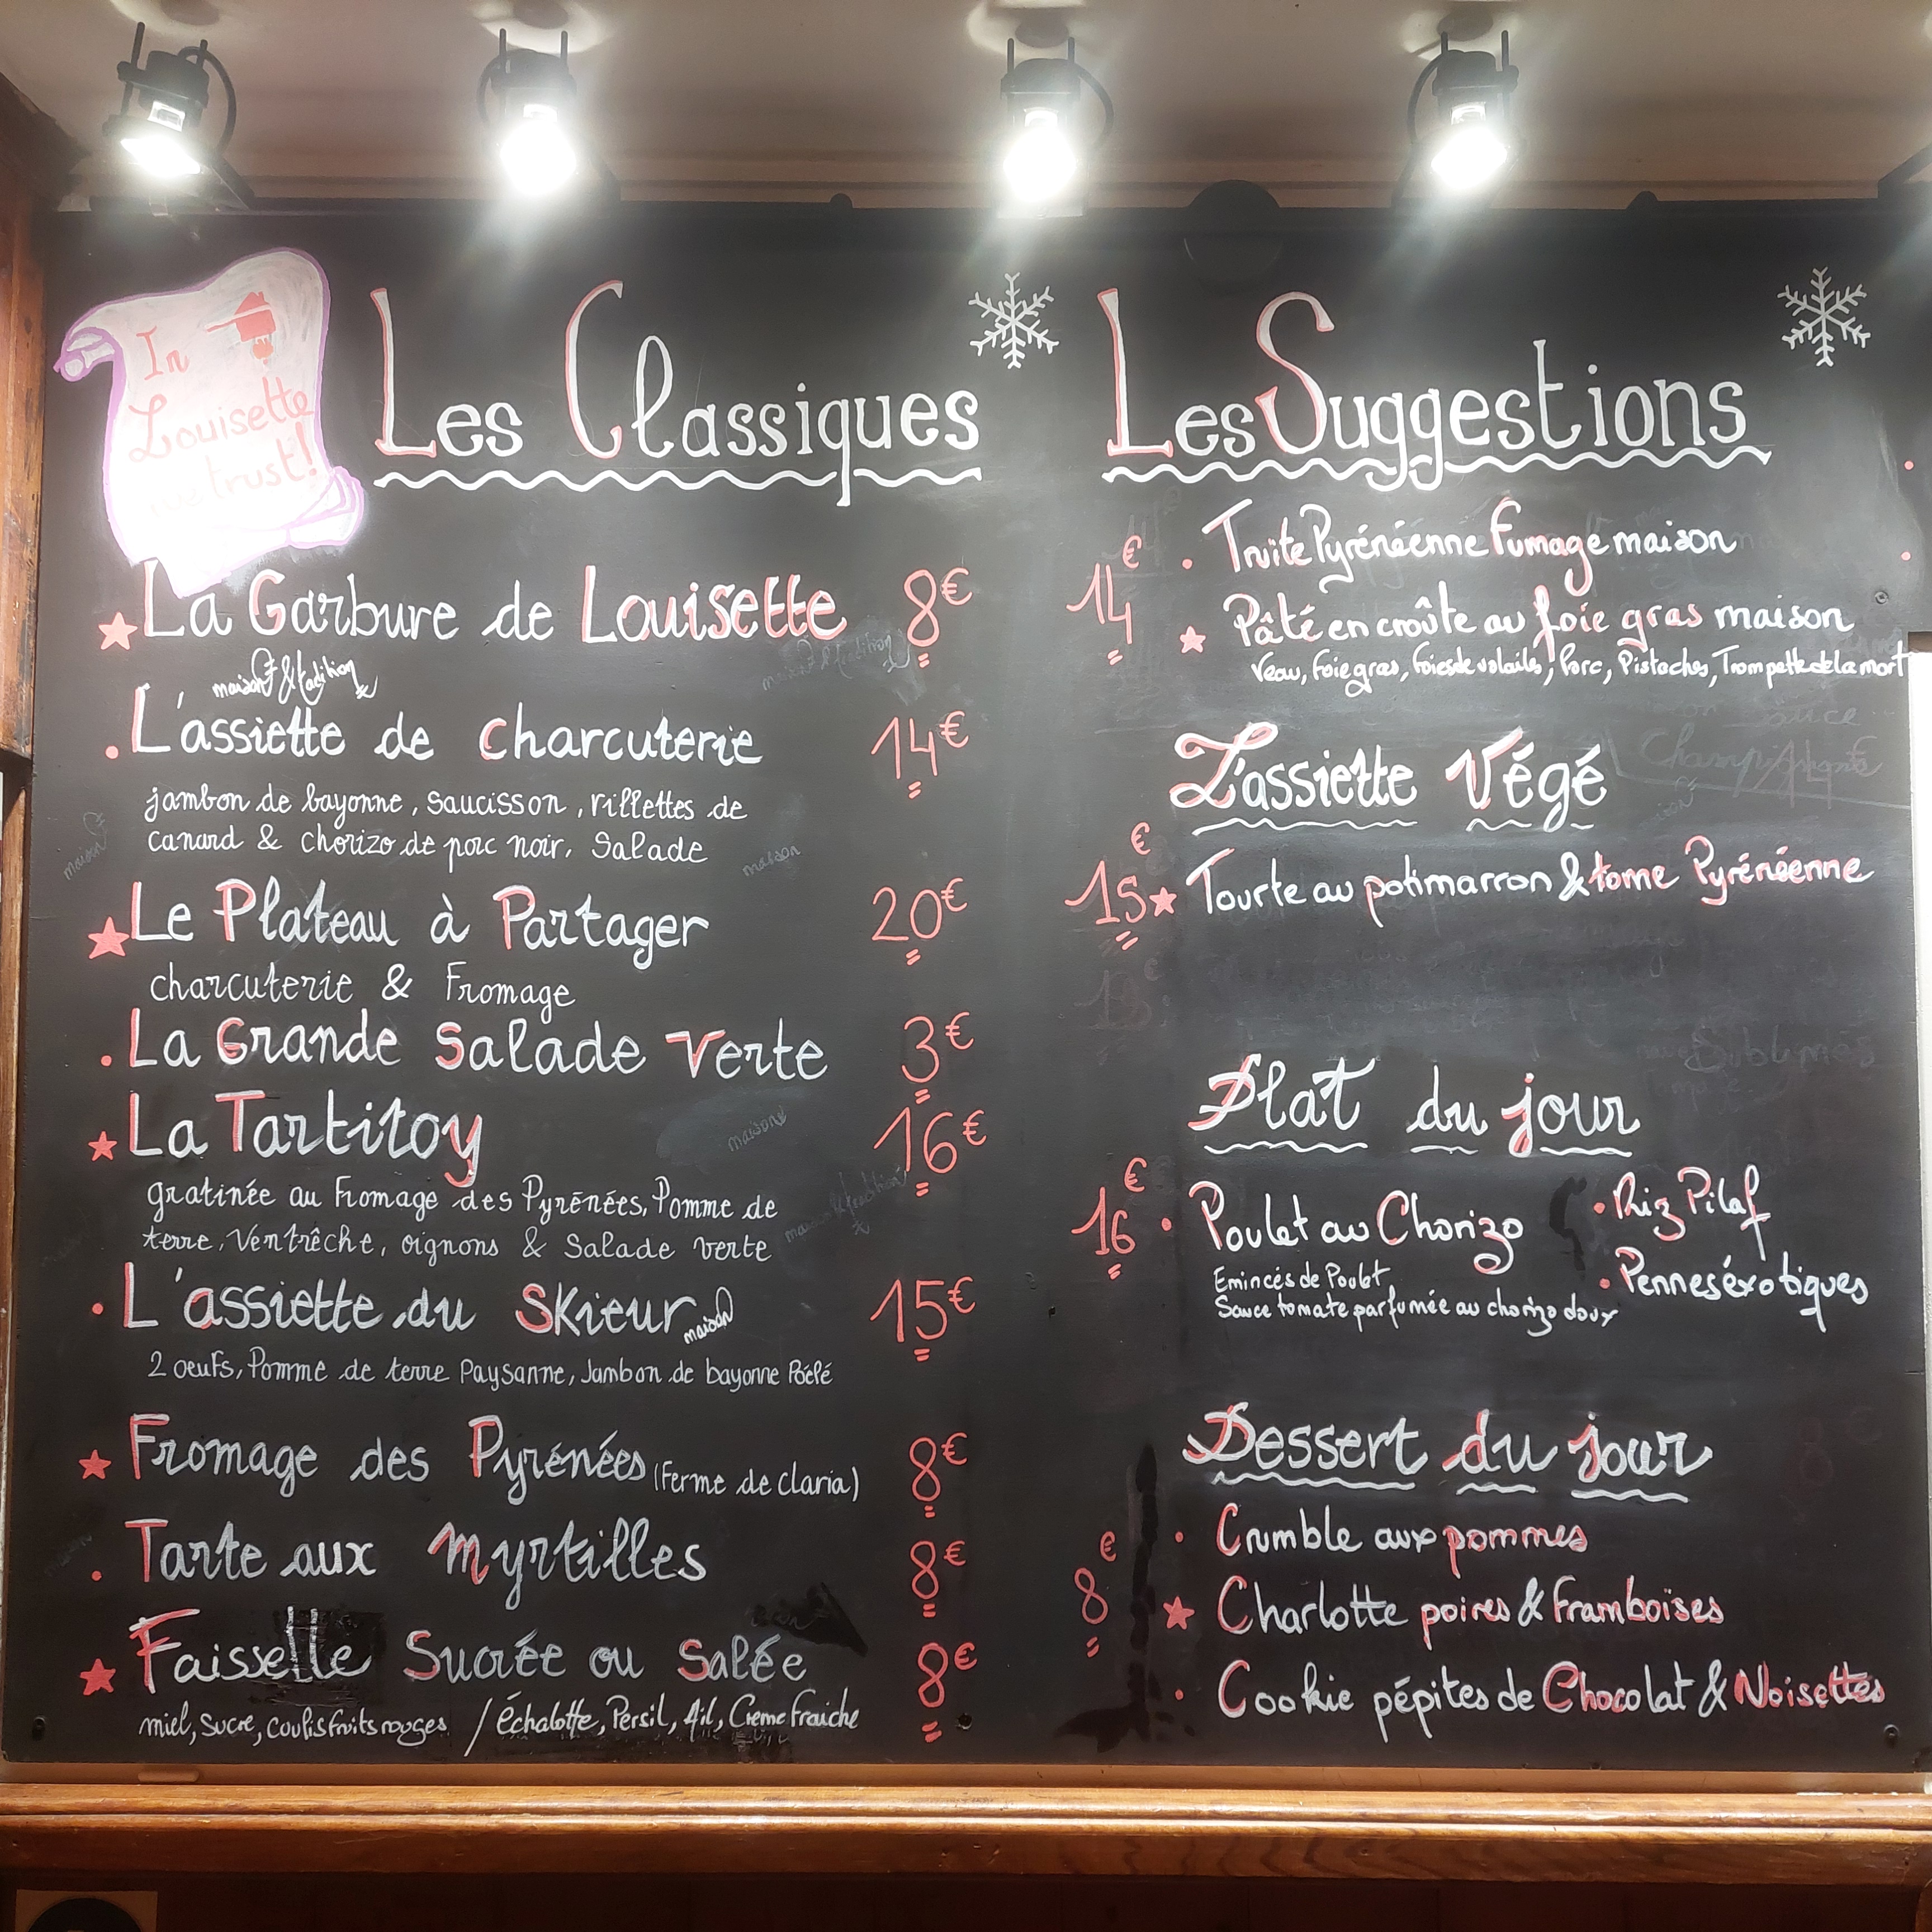 In
Louisette
we trust!
Les Classiques
La Garbure de Louisette 8€
maison & tradition
L'assiette de charcuterie 14€
jambon de bayonne, saucisson, rillettes de
canard & chorizo de porc noir, Salade
Le Plateau à Partager 20€
charcuterie & Fromage
La Grande Salade Verte 3€
La Tartitoy 16€
gratinée au Fromage des Pyrénées, Pomme de
terre, Ventrêche, oignons & Salade verte
L'assiette du Skieur maison 15€
2 oeufs, Pomme de terre Paysanne, Jambon de bayonne Poélé
Fromage des Pyrénées (Ferme de claria) 8€
Tarte aux Myrtilles 8€
Faisselle Sucrée ou Salée 8€
miel, sucre, coulis fruits rouges / échalotte, Persil, Ail, Crème fraiche
Les Suggestions
14€ Truite Pyrénéenne Fumage maison
Pâté en croûte au foie gras maison
Veau, foie gras, foies de volailes, Porc, Pistaches, Trompette de la mort
L'assiette Végé
15€ Tourte au potimarron & tome Pyrénéenne
Plat du jour
16€ Poulet au Chorizo
Emincés de Poulet,
Sauce tomate parfumée au chorizo doux
Riz Pilaf
Pennes éxotiques
Dessert du jour
8€
Crumble aux pommes
Charlotte poires & Framboises
Cookie pépites de Chocolat & Noisettes